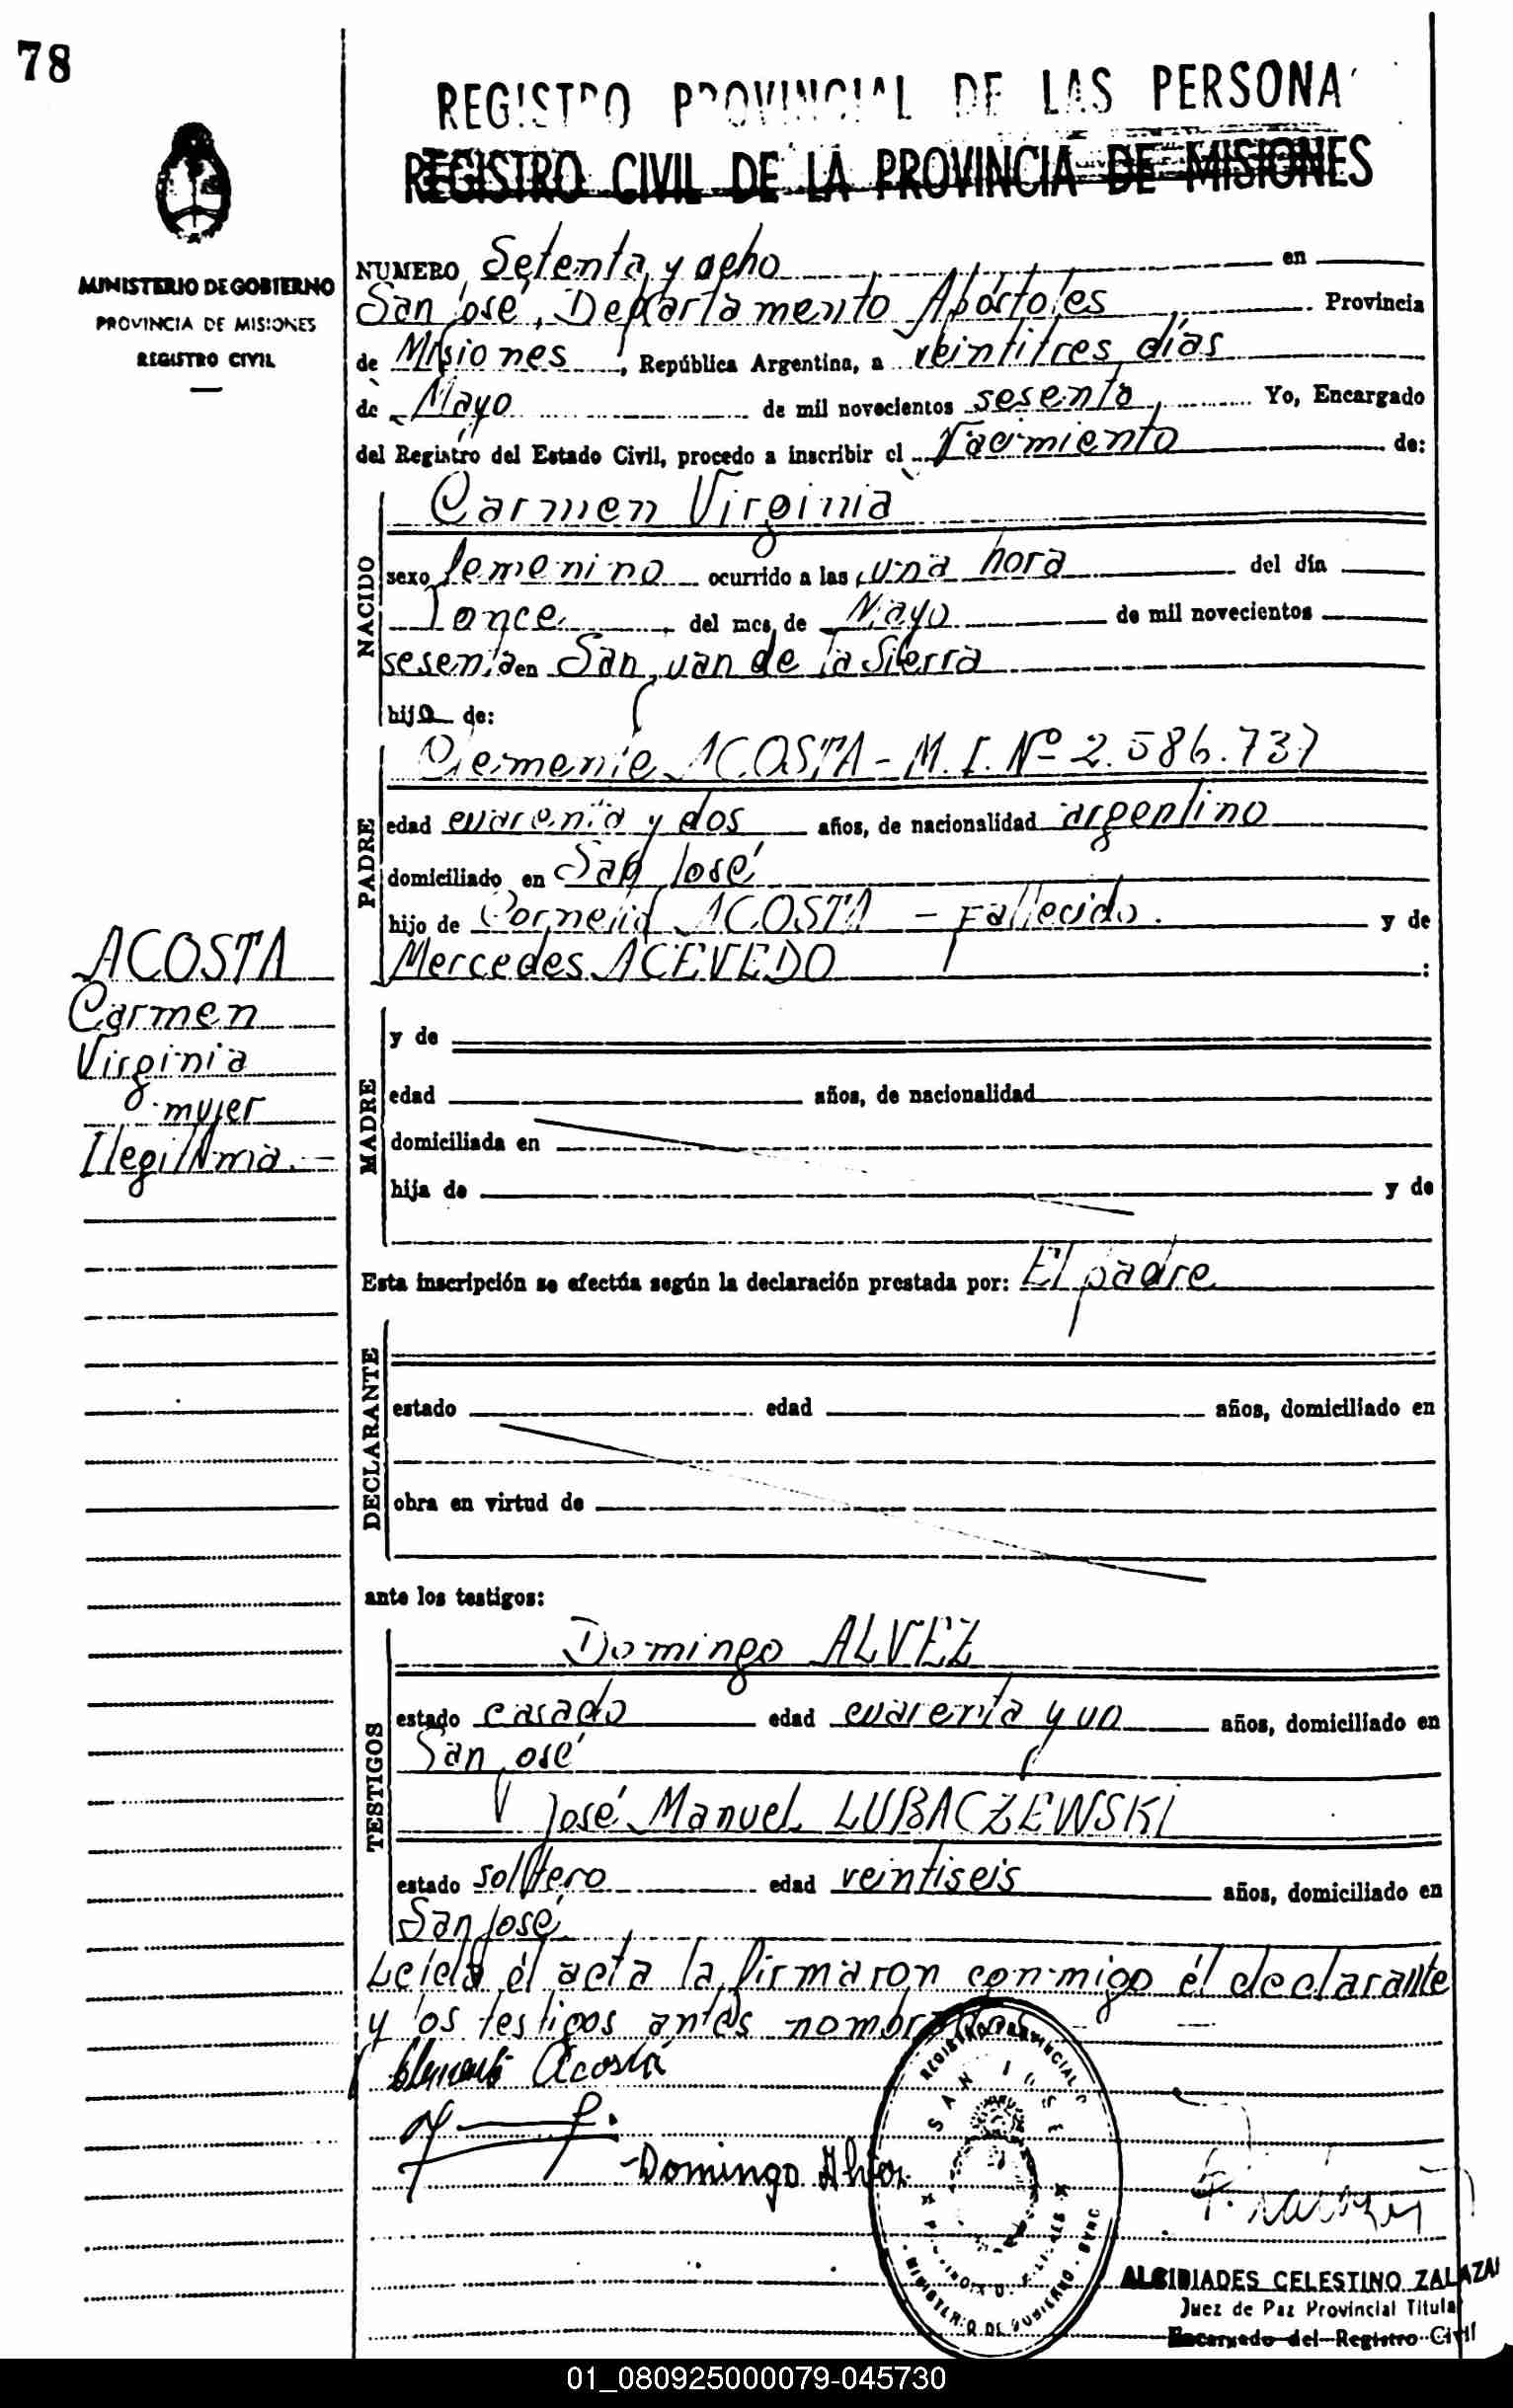 78
REGISTRO PROVINCIAL DE LAS PERSONA
REGISTRO CIVIL DE LA PROVINCIA DE MISIONES
MINISTERIO DE GOBIERNO
PROVINCIA DE MISIONES
REGISTRO CIVIL
NUMERO Setenta y ocho en
San José, Departamento Apóstoles Provincia
de Misiones, República Argentina, a veintitres días
de Mayo de mil novecientos sesenta, Yo, Encargado
del Registro del Estado Civil, procedo a inscribir el Nacimiento de:
NACIDO
Carmen Virginia
sexo femenino ocurrido a las una hora del día
once del mes de Mayo de mil novecientos
sesenta en San Juan de la Sierra
hija de:
PADRE
Clemente ACOSTA - M. I. Nº 2.586.737
edad cuarenta y dos años, de nacionalidad argentino
domiciliado en San José
hijo de Cornelio ACOSTA - Fallecido. y de
Mercedes ACEVEDO :
ACOSTA
Carmen
Virginia
mujer
Ilegitima.-
MADRE
y de
edad años, de nacionalidad
domiciliada en
hija de y de
Esta inscripción se efectúa según la declaración prestada por: El padre
DECLARANTE
estado edad años, domiciliado en
obra en virtud de
ante los testigos:
TESTIGOS
Domingo ALVEZ
estado casado edad cuarenta y un años, domiciliado en
San José
José Manuel LUBACZEWSKI
estado soltero edad veintiseis años, domiciliado en
San José
Leída el acta la firmaron conmigo él declarante
y los testigos antes nombrados
Clemente Acosta
Domingo Alvez
REGISTRO PROVINCIAL
SAN JOSE
MINISTERIO DE GOBIERNO
ALCIDIADES CELESTINO ZALAZAR
Juez de Paz Provincial Titular
Encargado del Registro Civil
01_080925000079-045730